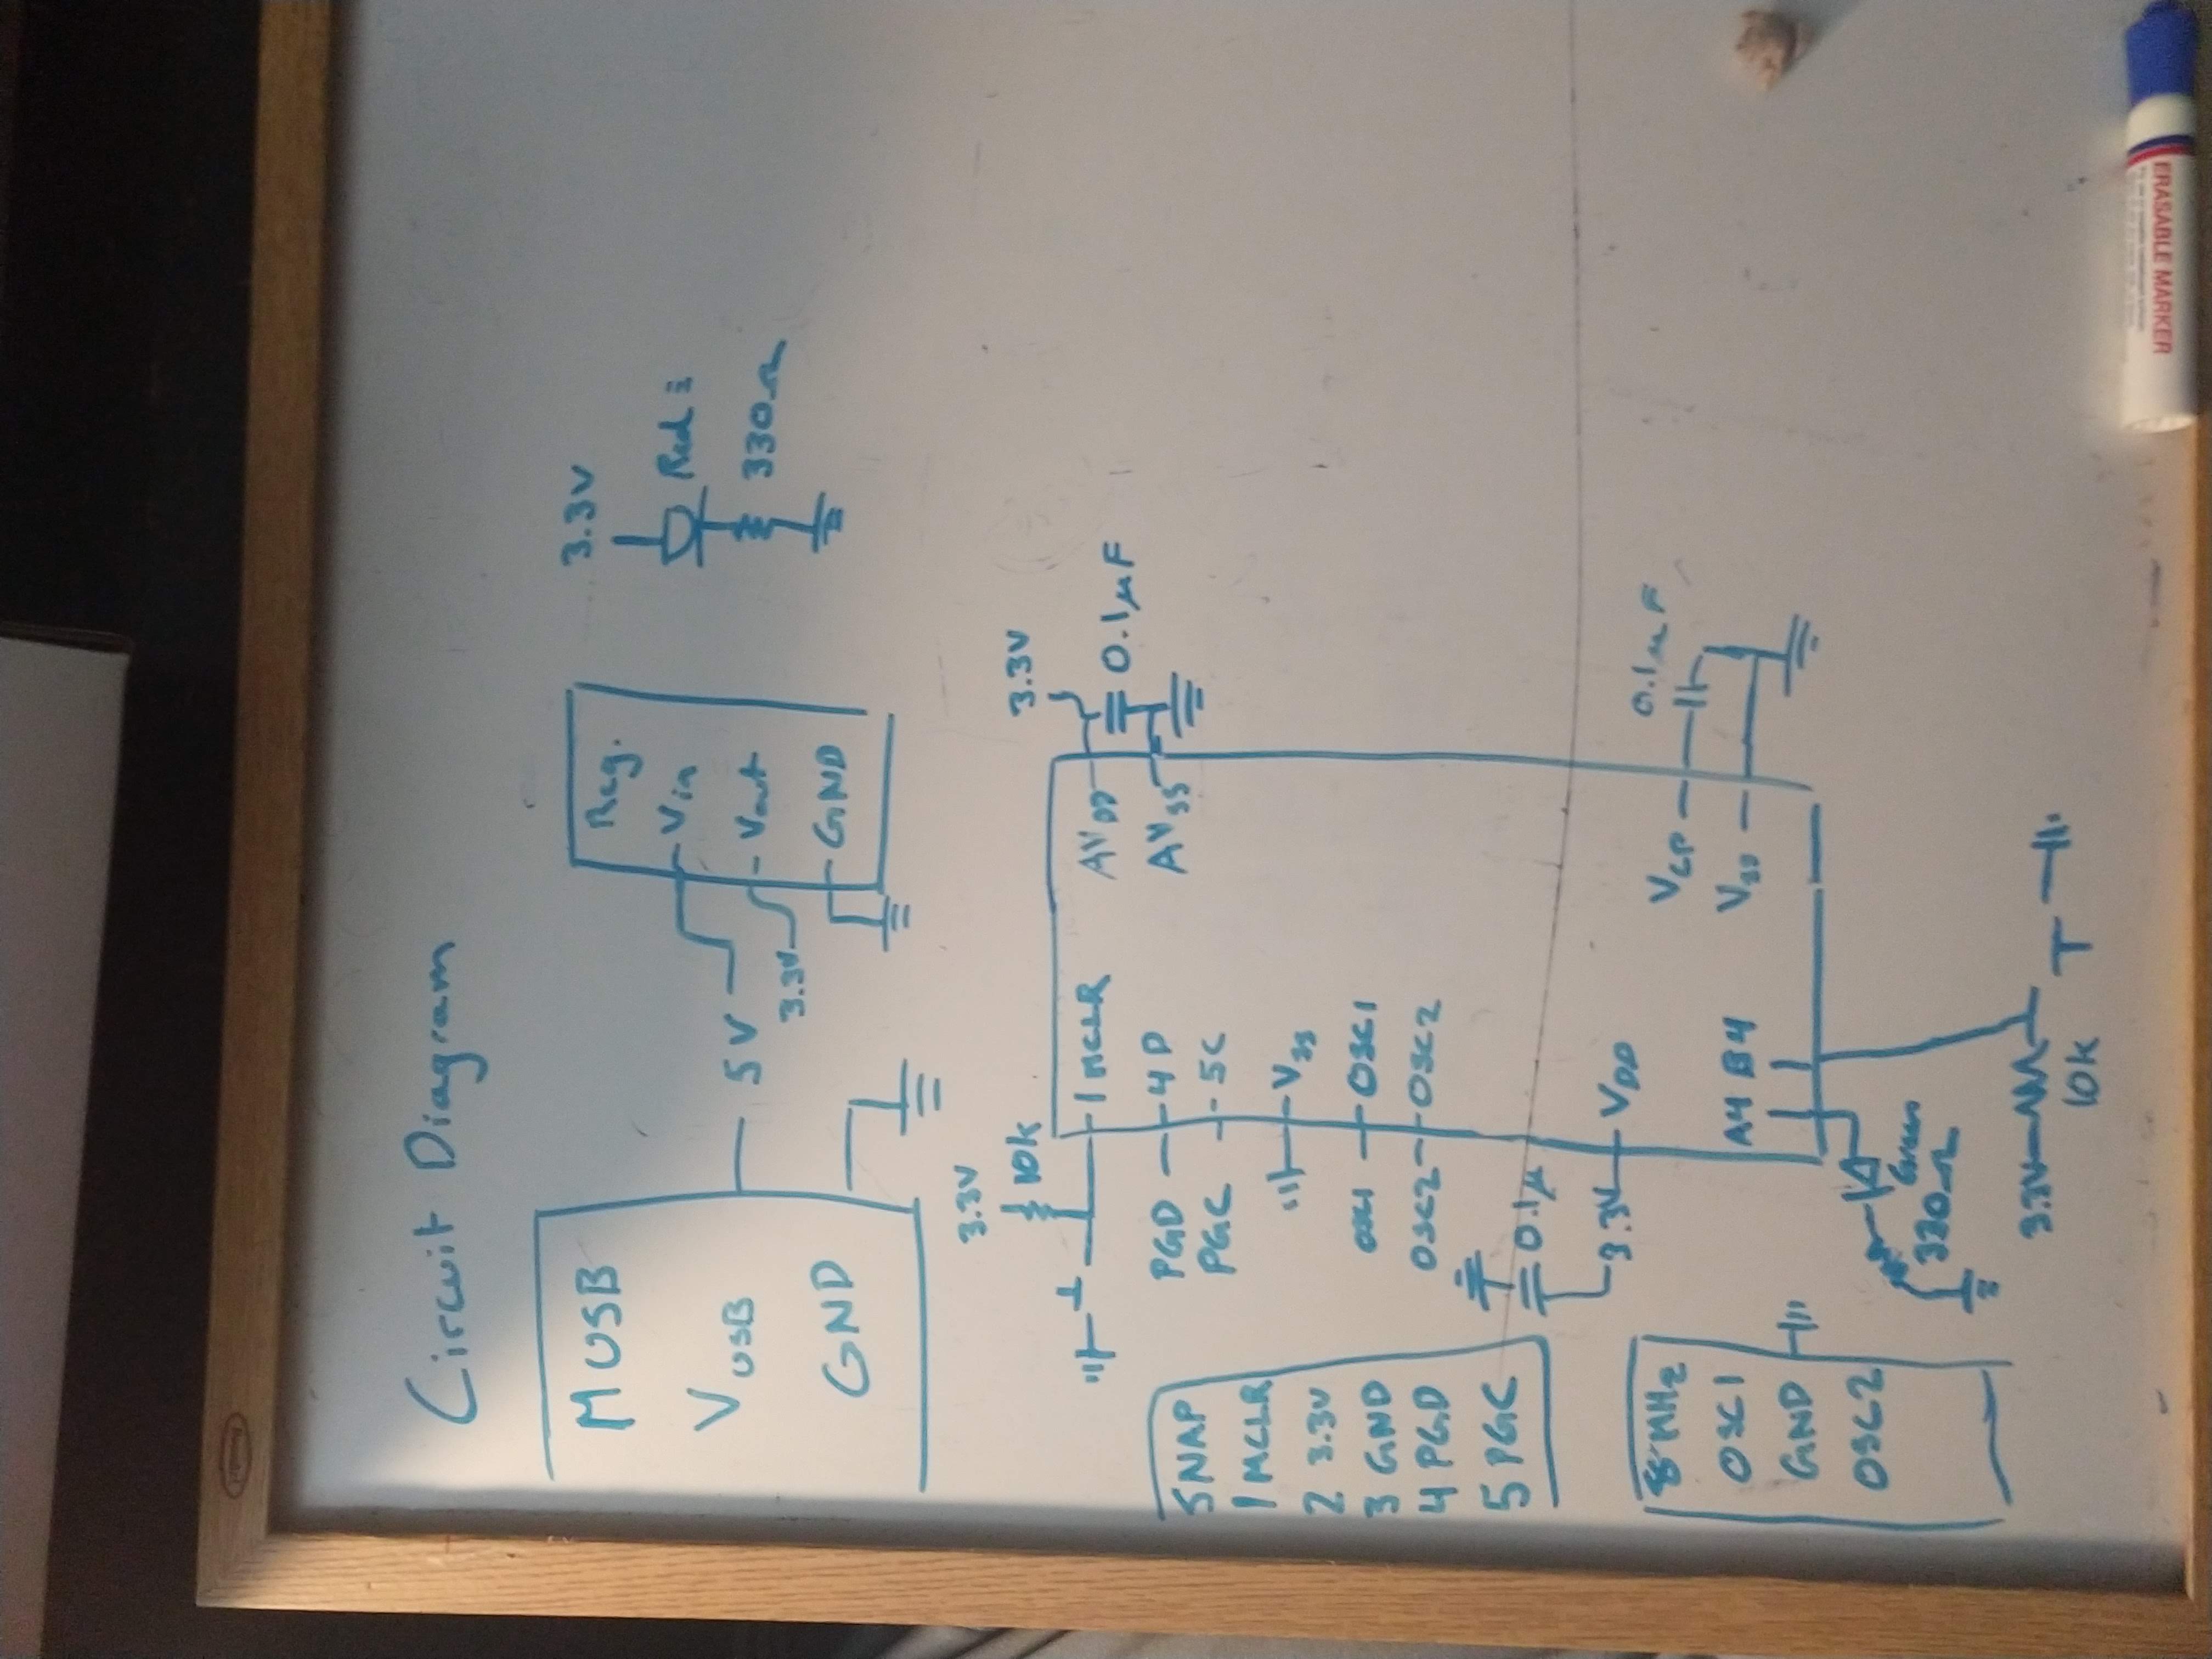 Circuit Diagram
MUSB
VUSB
GND
5V
3.3V
Reg.
Vin
Vout
GND
3.3V
Red
330Ω
3.3V
10k
1 MCLR
PGD
4D
PGC
5C
VSS
OSC1
OSC1
OSC2
OSC2
0.1μ
3.3V
VDD
A4 B4
AVDD
AVSS
3.3V
0.1μF
VCP
VSS
0.1μF
Green
330Ω
3.3V
10k
SNAP
1 MCLR
2 3.3V
3 GND
4 PGD
5 PGC
8MHz
OSC1
GND
OSC2
ERASABLE MARKER